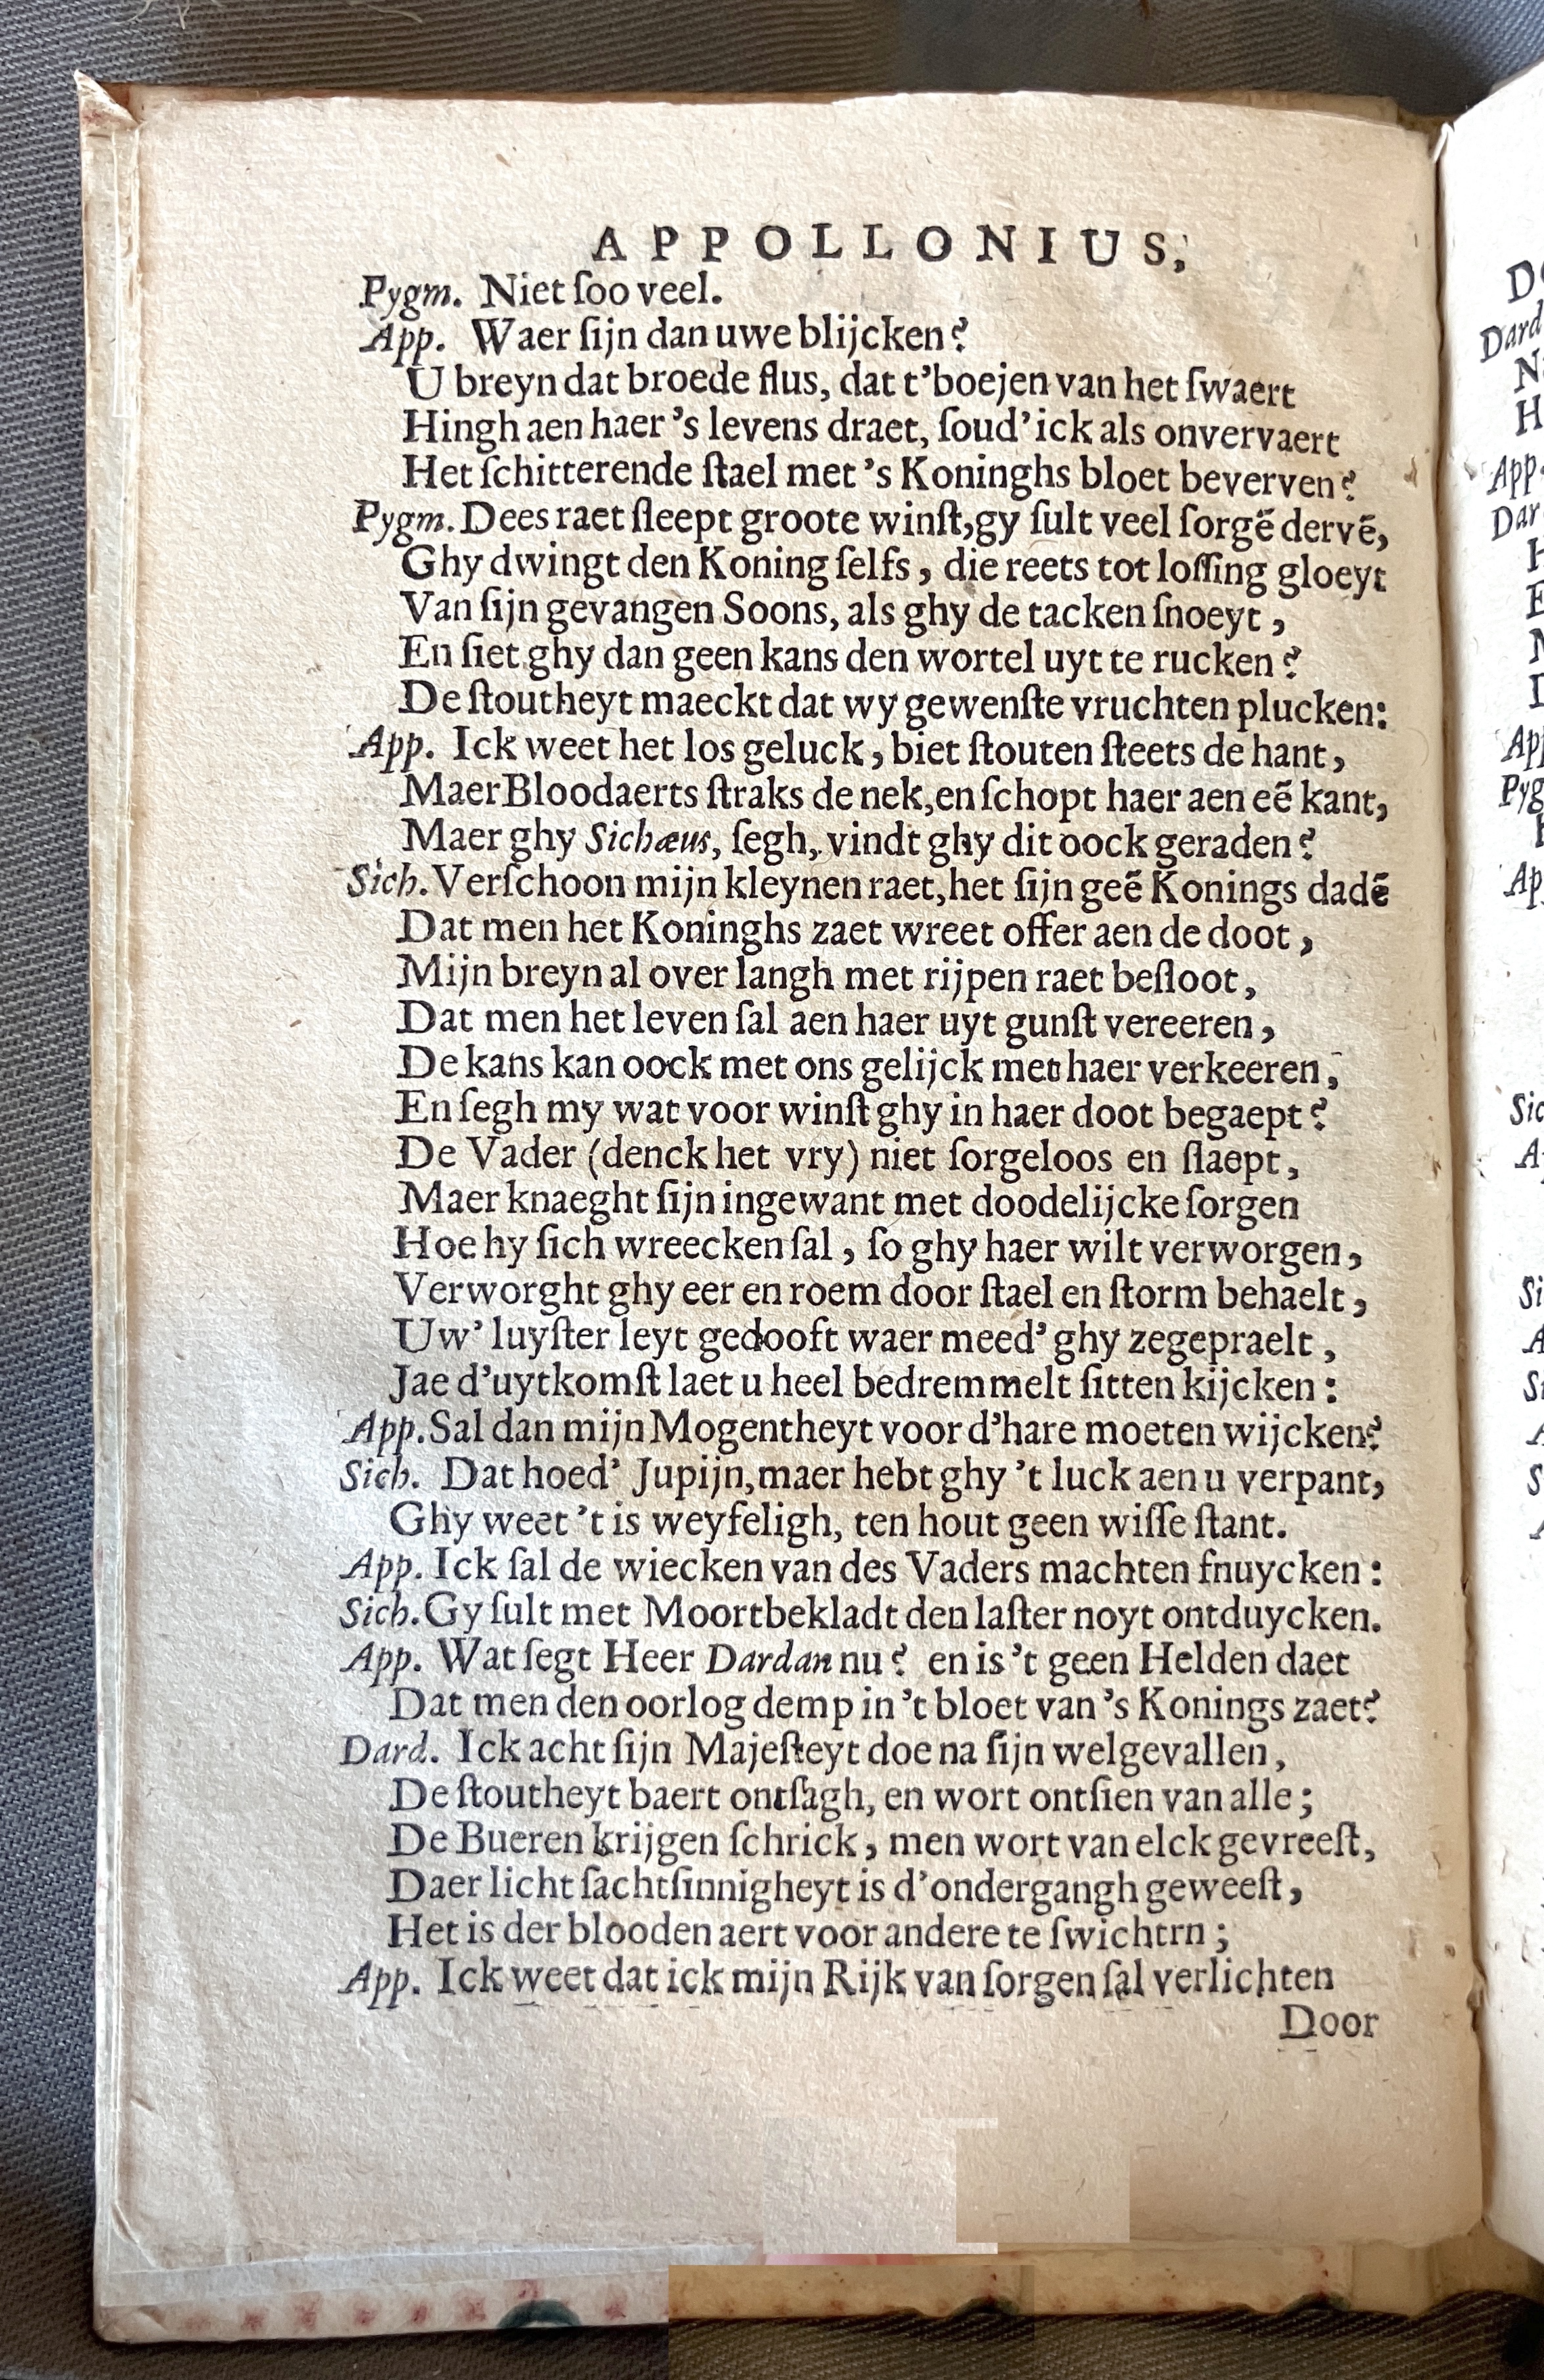 APPOLLONIUS,
Pygm. Niet ſoo veel.
App. Waer ſijn dan uwe blijcken?
U breyn dat broede flus, dat t'boejen van het ſwaert
Hingh aen haer 's levens draet, ſoud' ick als onvervaert
Het ſchitterende ſtael met 's Koninghs bloet beverven?
Pygm. Dees raet ſleept groote winſt, gy ſult veel ſorgẽ dervẽ,
Ghy dwingt den Koning ſelfs, die reets tot loſſing gloeyt
Van ſijn gevangen Soons, als ghy de tacken ſnoeyt,
En ſiet ghy dan geen kans den wortel uyt te rucken?
De ſtoutheyt maeckt dat wy gewenſte vruchten plucken:
App. Ick weet het los geluck, biet ſtouten ſteets de hant,
Maer Bloodaerts ſtraks de nek, en ſchopt haer aen eẽ kant,
Maer ghy Sichæus, ſegh, vindt ghy dit oock geraden?
Sich. Verſchoon mijn kleynen raet, het ſijn geẽ Konings dadẽ
Dat men het Koninghs zaet wreet offer aen de doot,
Mijn breyn al over langh met rijpen raet beſloot,
Dat men het leven ſal aen haer uyt gunſt vereeren,
De kans kan oock met ons gelijck met haer verkeeren,
En ſegh my wat voor winſt ghy in haer doot begaept?
De Vader (denck het vry) niet ſorgeloos en ſlaept,
Maer knaeght ſijn ingewant met doodelijcke ſorgen
Hoe hy ſich wreecken ſal, ſo ghy haer wilt verworgen,
Verworght ghy eer en roem door ſtael en ſtorm behaelt,
Uw' luyſter leyt gedooft waer meed' ghy zegepraelt,
Jae d'uytkomſt laet u heel bedremmelt ſitten kijcken:
App. Sal dan mijn Mogentheyt voor d'hare moeten wijcken?
Sich. Dat hoed' Jupijn, maer hebt ghy 't luck aen u verpant,
Ghy weet 't is weyfeligh, ten hout geen wiſſe ſtant.
App. Ick ſal de wiecken van des Vaders machten fnuycken:
Sich. Gy ſult met Moortbekladt den laſter noyt ontduycken.
App. Wat ſegt Heer Dardan nu? en is 't geen Helden daet
Dat men den oorlog demp in 't bloet van 's Konings zaet?
Dard. Ick acht ſijn Majeſteyt doe na ſijn welgevallen,
De ſtoutheyt baert ontſagh, en wort ontſien van alle;
De Bueren krijgen ſchrick, men wort van elck gevreeſt,
Daer licht ſachtſinnigheyt is d'ondergangh geweeſt,
Het is der blooden aert voor andere te ſwichtrn;
App. Ick weet dat ick mijn Rijk van ſorgen ſal verlichten
Door